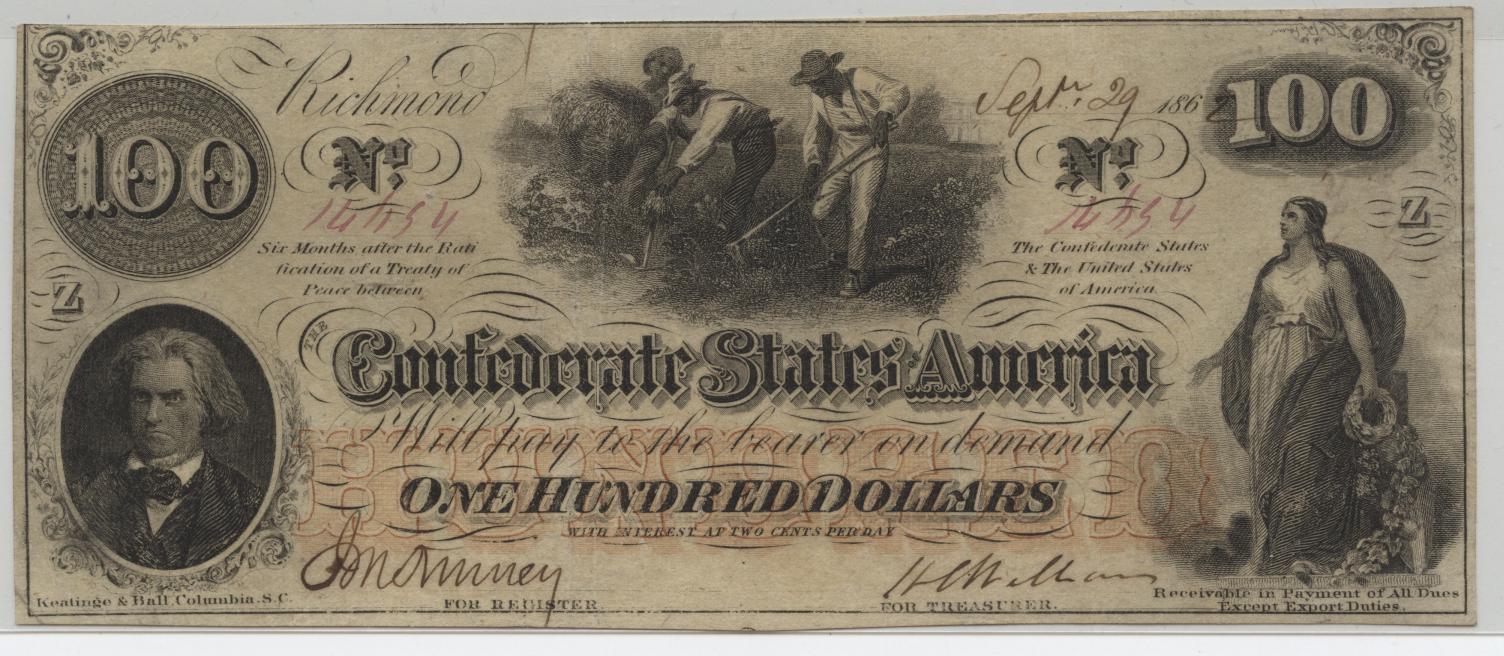 Richmond
Sept. 29 1862
100
100
No.
No.
Six Months after the Rati
fication of a Treaty of
Peace between
The Confederate States
& The United States
of America
Z
Z
THE
Confederate States of America
Will pay to the bearer on demand
HUNDRED
ONE HUNDRED DOLLARS
WITH INTEREST AT TWO CENTS PER DAY
FOR REGISTER.
FOR TREASURER.
Keatinge & Ball, Columbia, S.C.
Receivable in Payment of All Dues
Except Export Duties.